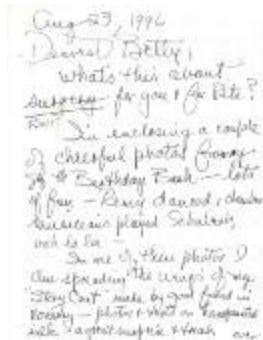 Aug 23, 1996
Dearest Betty,
What's this about
surgery for you & for Pete?
I'm enclosing a couple
of cheerful photos from
Birthday Bash — lots
of fun — danced, chamber
musicians played Schubert,
ooh la la —
In one of these photos I
am spreading the wings of my
"Story Coat" made by good friend in
photos & on
silk — a great surprise &
over